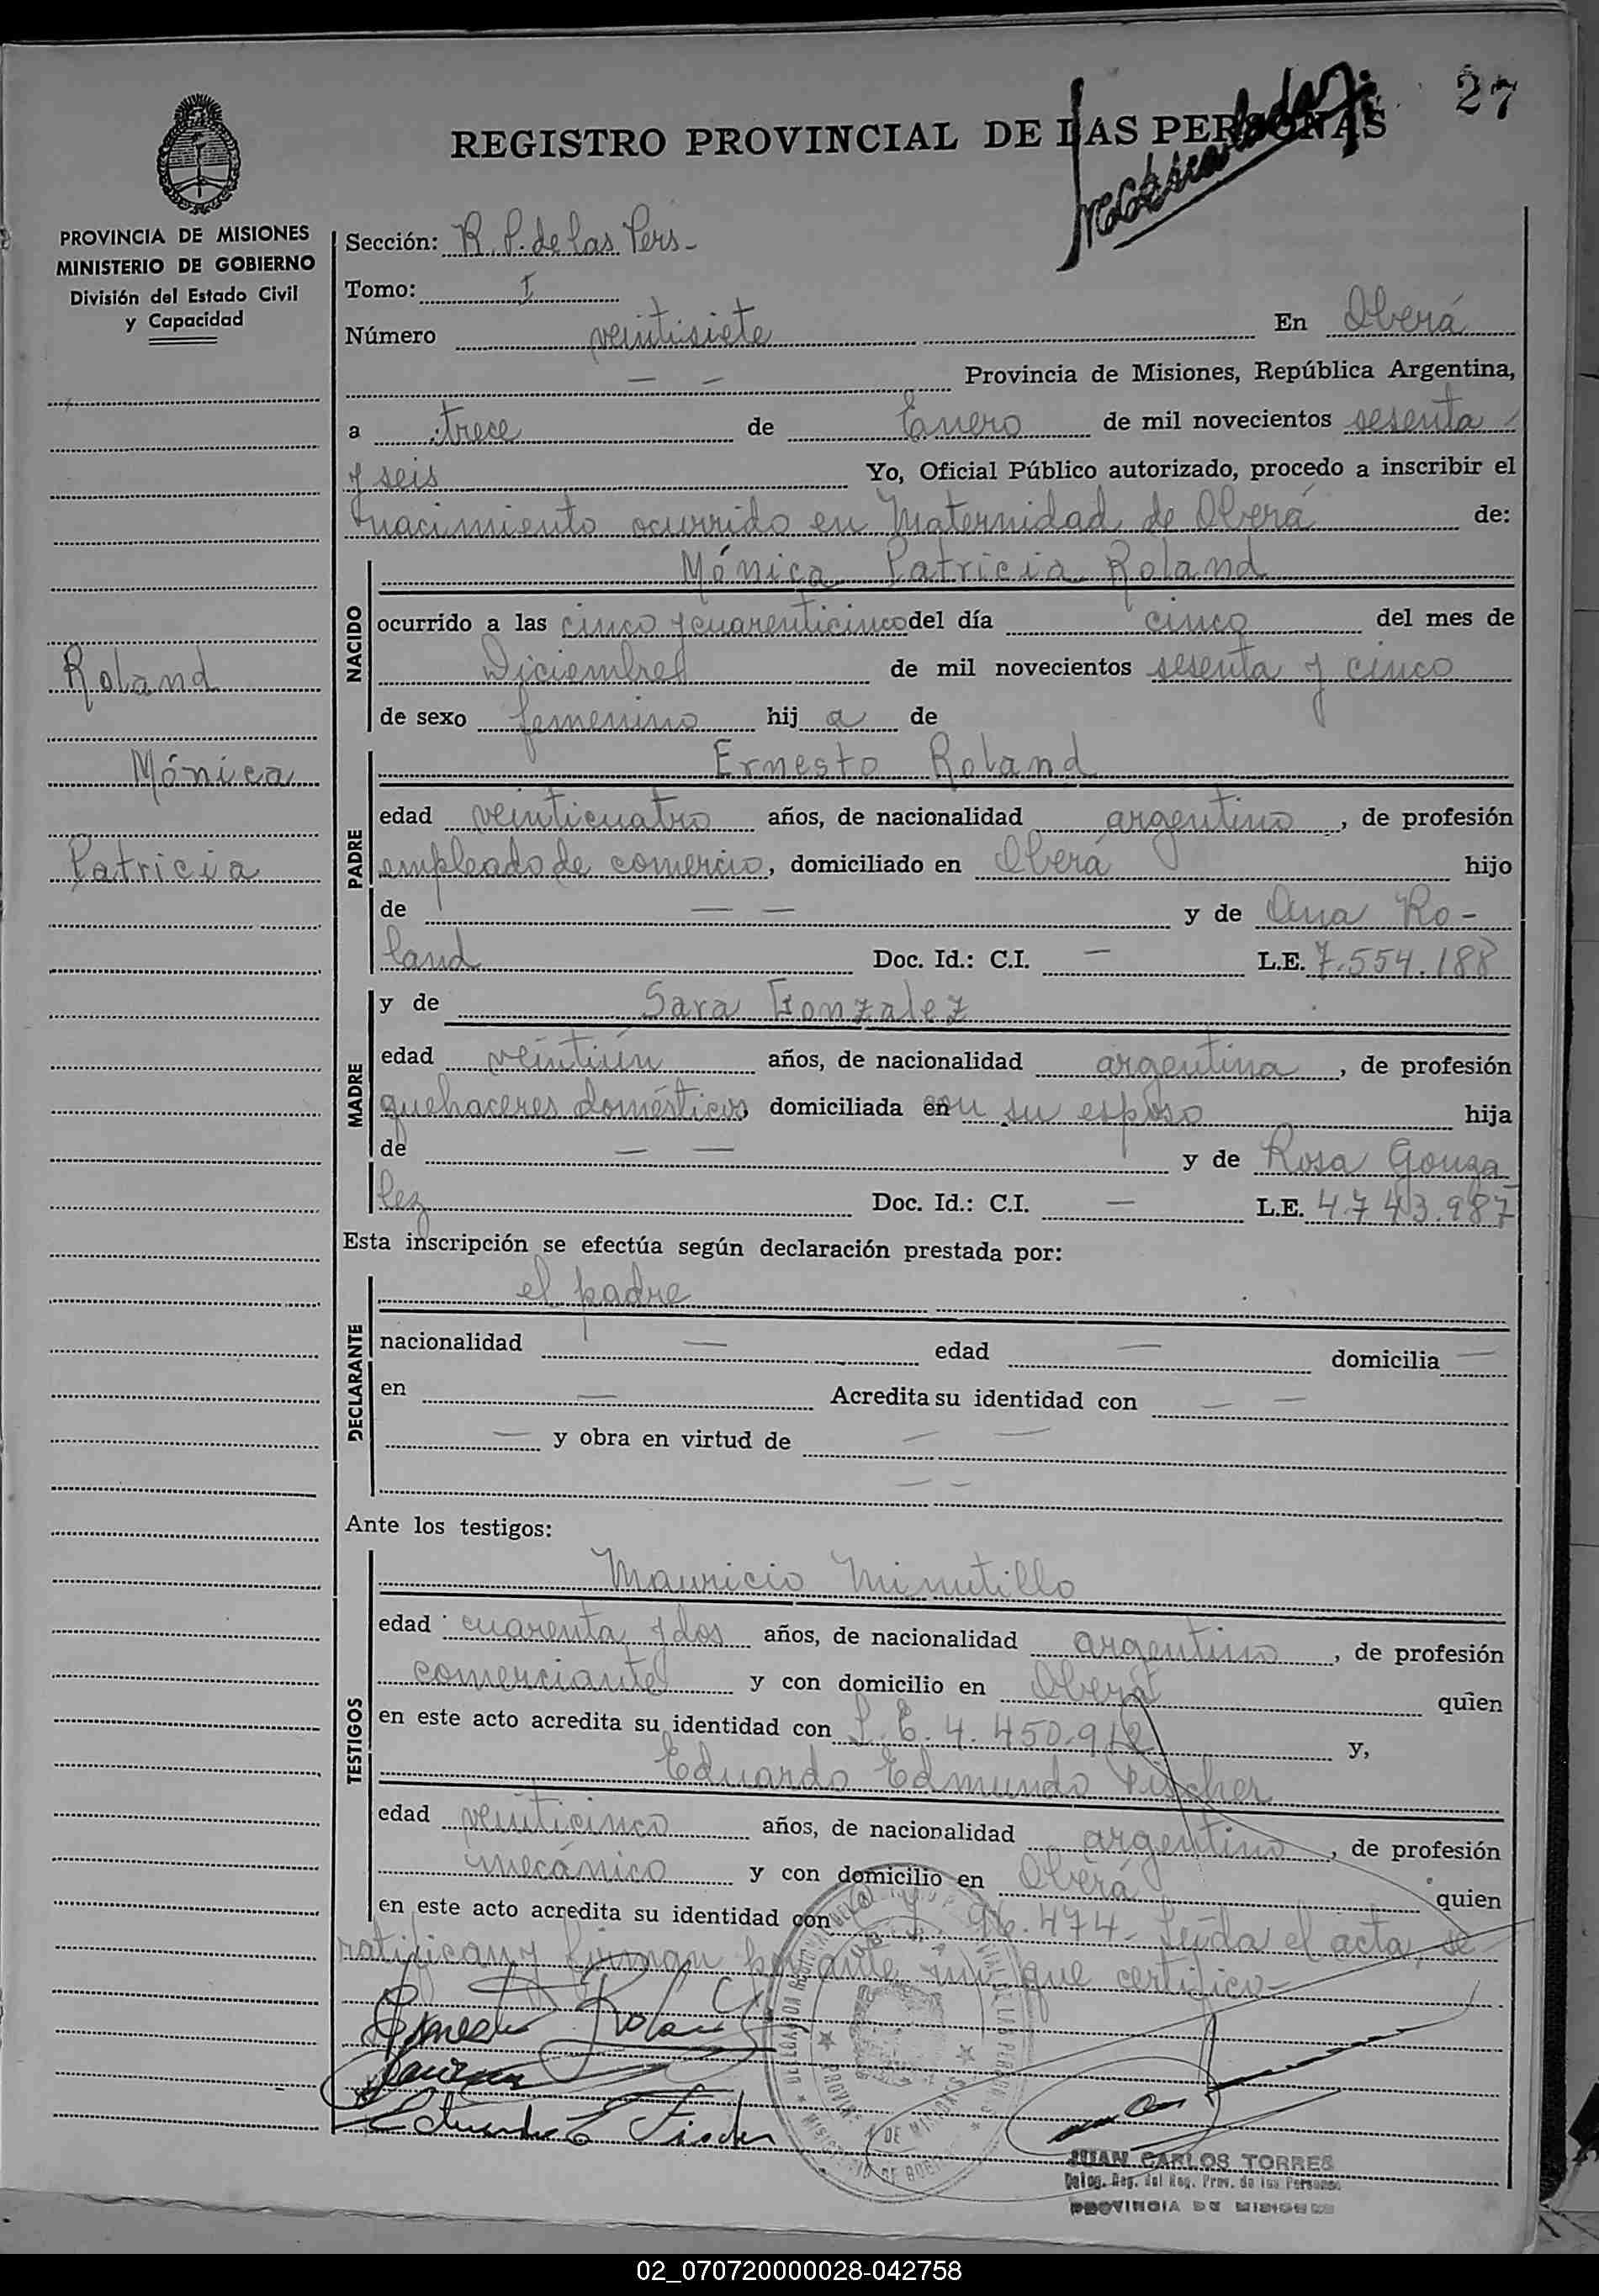 27
REGISTRO PROVINCIAL DE LAS PERSONAS
PROVINCIA DE MISIONES
MINISTERIO DE GOBIERNO
División del Estado Civil
y Capacidad
Roland
Mónica
Patricia
Sección: R. P. de las Pers-
Tomo: I
Número veintisiete En Oberá
— — Provincia de Misiones, República Argentina,
a trece de Enero de mil novecientos sesenta
y seis Yo, Oficial Público autorizado, procedo a inscribir el
nacimiento ocurrido en Maternidad de Oberá de:
NACIDO
Mónica Patricia Roland
ocurrido a las cinco y cuarenticinco del día cinco del mes de
Diciembre de mil novecientos sesenta y cinco
de sexo femenino hij a de
PADRE
Ernesto Roland
edad veinticuatro años, de nacionalidad argentino, de profesión
empleado de comercio, domiciliado en Oberá hijo
de — — y de Ana Ro-
land Doc. Id.: C.I. — L.E. 7.554.188
MADRE
y de Sara Gonzalez
edad veintiún años, de nacionalidad argentina, de profesión
quehaceres domésticos, domiciliada en con su esposo hija
de — — y de Rosa Gonza
lez Doc. Id.: C.I. — L.E. 4.743.987
Esta inscripción se efectúa según declaración prestada por:
DECLARANTE
el padre
nacionalidad — edad — domicilia —
en — Acredita su identidad con — —
— y obra en virtud de — —
— —
Ante los testigos:
TESTIGOS
Mauricio Minutillo
edad cuarenta y dos años, de nacionalidad argentino, de profesión
comerciante y con domicilio en Oberá quien
en este acto acredita su identidad con L. E. 4.450.912 y,
Eduardo Edmundo Fischer
edad veinticinco años, de nacionalidad argentino, de profesión
mecánico y con domicilio en Oberá quien
en este acto acredita su identidad con 96.474- Leída el acta, se
ratifican y firman por ante mí que certifico-
Ernesto Roland
Eduardo E Fischer
JUAN CARLOS TORRES
Deleg. Reg. del Reg. Prov. de las Personas
PROVINCIA DE MISIONES
02_070720000028-042758